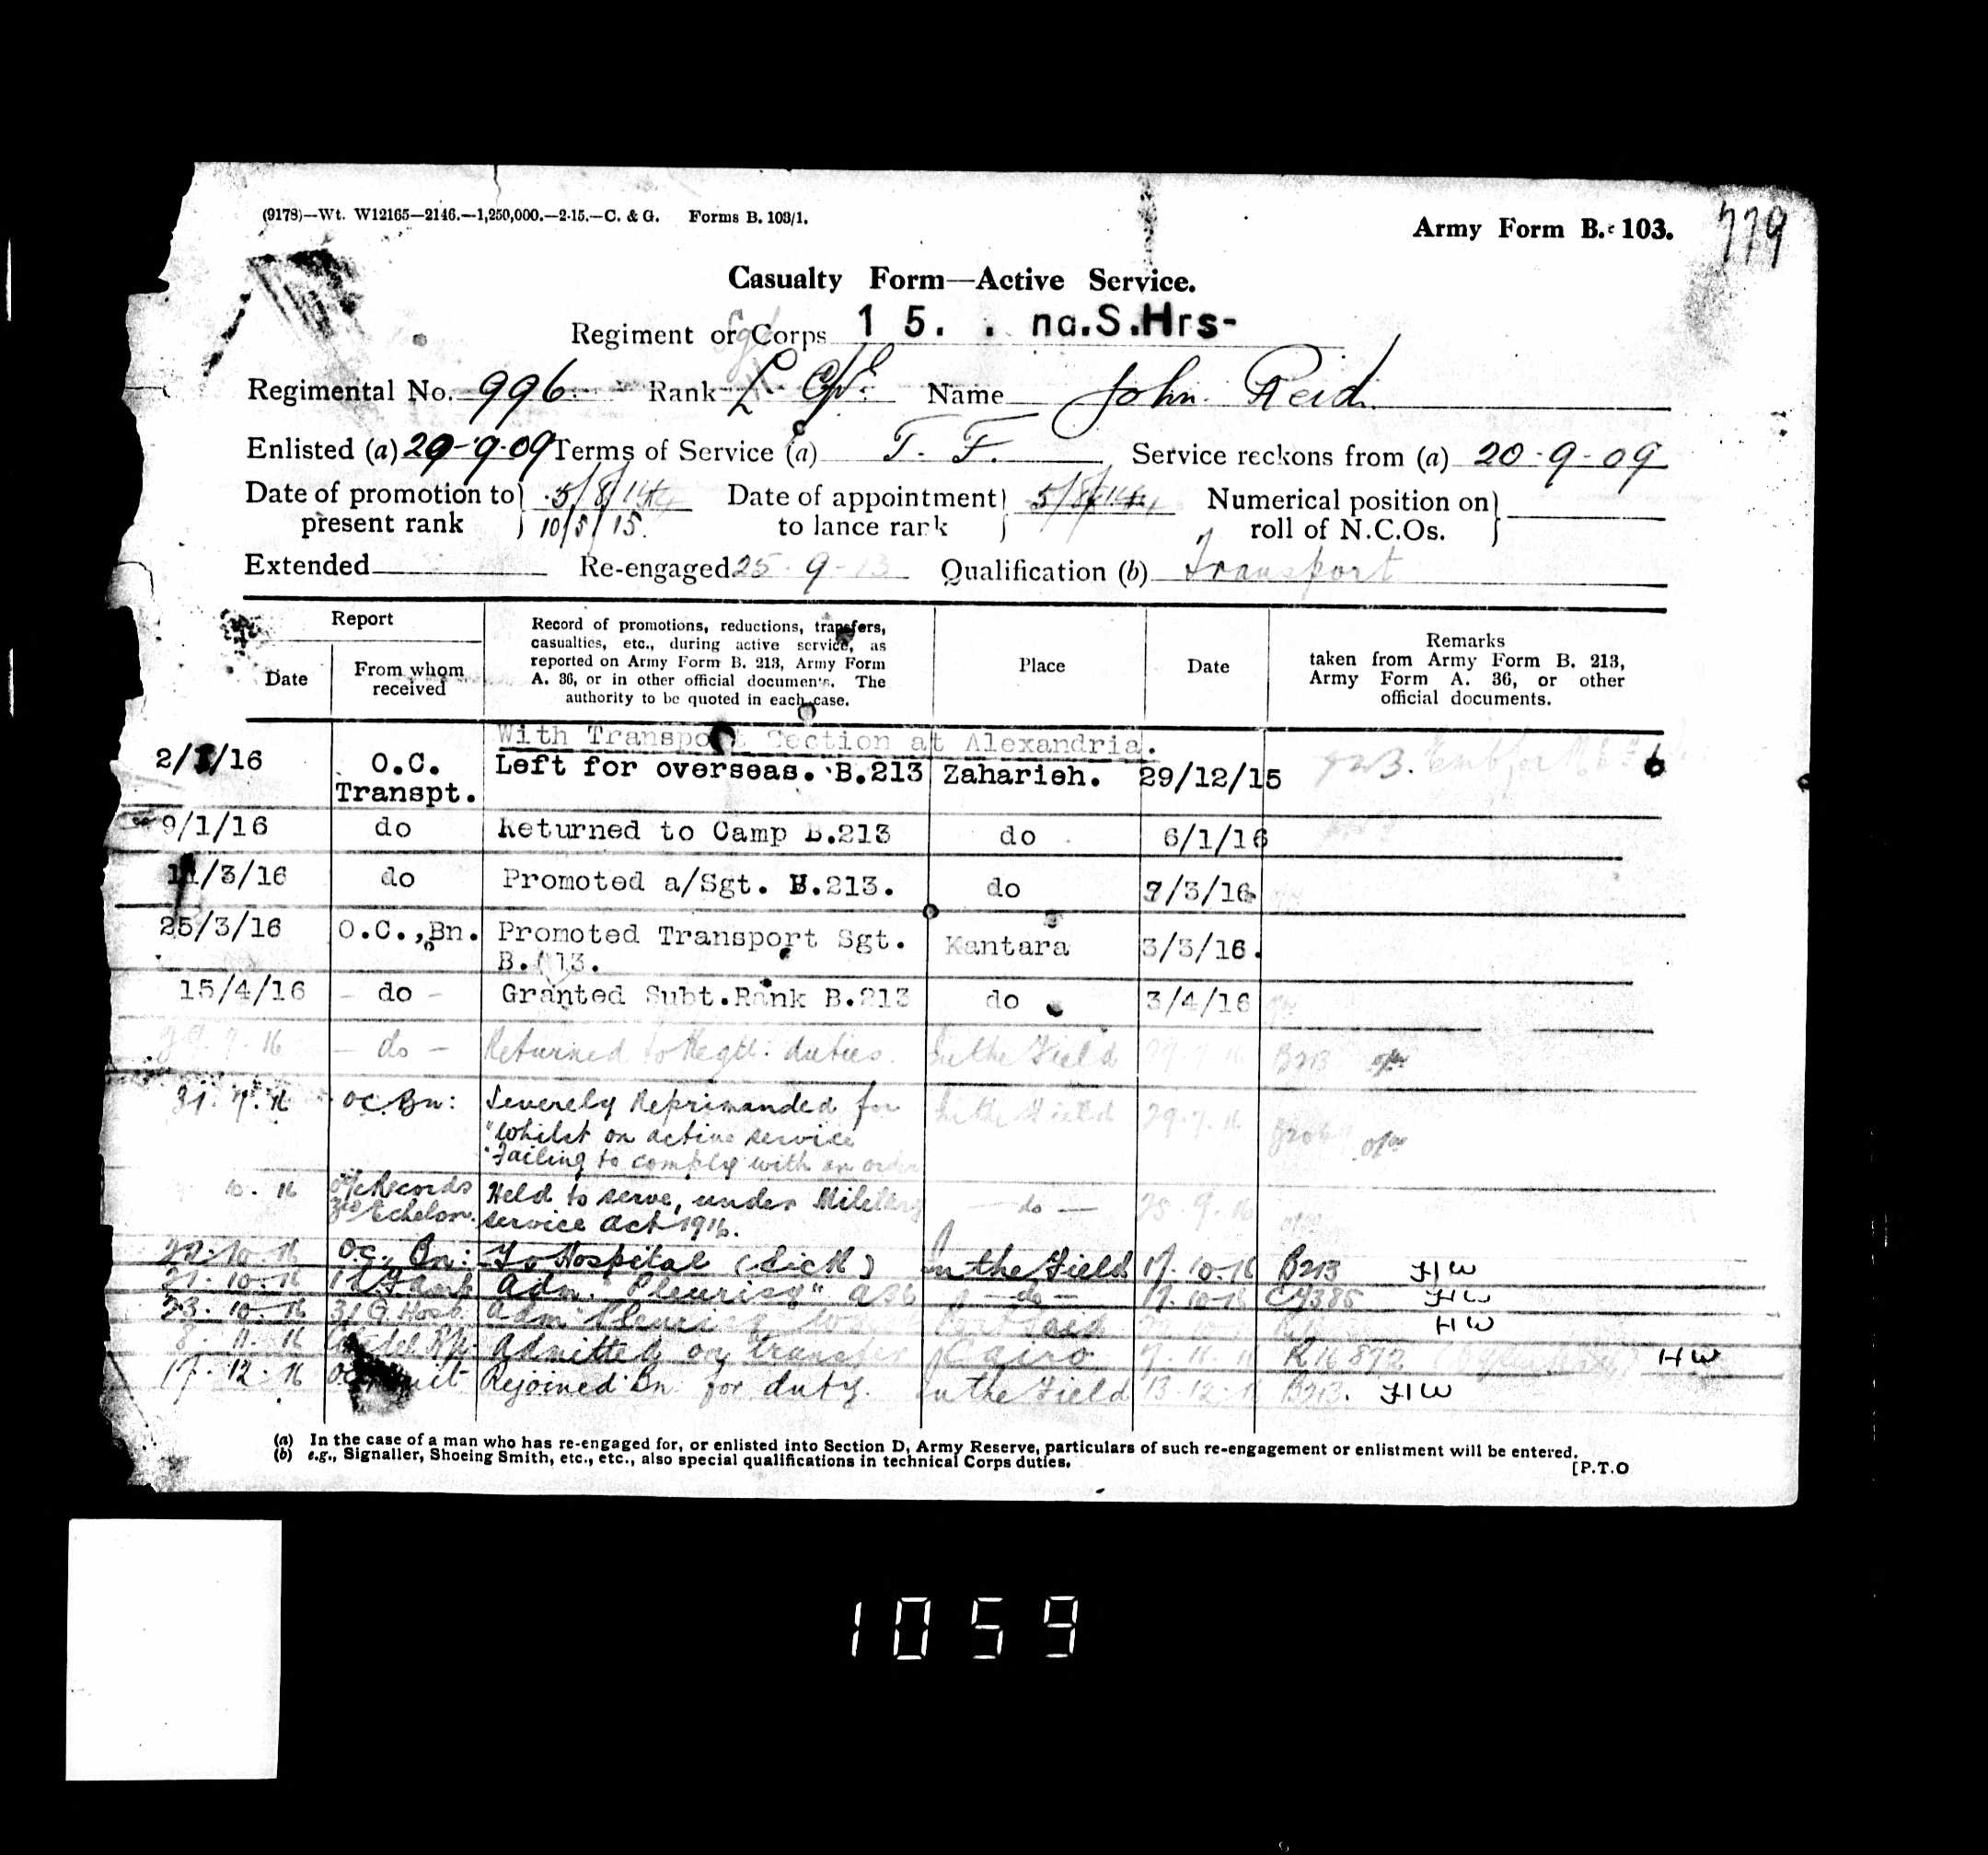 (9178)—Wt. W12165—2146.—1,250,000.—2-15.—C. & G. Forms B. 103/1.
Army Form B. 103.
779
Casualty Form—Active Service.
Regiment or Corps 1 5. . na.S.Hrs-
Regimental No. 996. Rank L. Cpl. Name John Reid
Enlisted (a) 20-9-09 Terms of Service (a) T. F. Service reckons from (a) 20-9-09
Date of promotion to present rank } 5/8/14 Date of appointment to lance rank } 5/8/14 Numerical position on roll of N.C.Os. }
10/5/15.
Extended Re-engaged 25-9-13 Qualification (b) Transport
Report
Date
From whom received
Record of promotions, reductions, transfers,
casualties, etc., during active service, as
reported on Army Form B. 213, Army Form
A. 36, or in other official documents. The
authority to be quoted in each case.
Place
Date
Remarks
taken from Army Form B. 213,
Army Form A. 36, or other
official documents.
With Transport Section at Alexandria.
2/1/16 O.C. Transpt. Left for overseas. B.213 Zaharieh. 29/12/15
9/1/16 do Returned to Camp B.213 do 6/1/16
11/3/16 do Promoted a/Sgt. B.213. do 7/3/16
25/3/16 O.C.,Bn. Promoted Transport Sgt. Kantara 3/3/16.
B.213.
15/4/16 - do - Granted Subt.Rank B.213 do 3/4/16
29.7.16 - do - Returned to Regtl: duties. In the Field B213
31.7.16 OC. Bn: Severely Reprimanded for In the Field 29.7.16
"Whilst on active service
"Failing to comply with an order
10.16 O/c Records Held to serve, under Military - do - 25.9.16
3rd Echelon. service act 1916.
22.10.16 OC. Bn: To Hospital (Sick) In the Field 17.10.16 B213 HW
21.10.16 Adm. "Pleurisy" - do - 17.10.16 HW
23.10.16 31 G. Hosp. Adm Pleurisy Port Said HW
8.11.16 Admitted on transfer Cairo 7.11.16 R16872 HW
17.12.16 Rejoined Bn for duty. In the Field 13.12.16 B213. HW
(a) In the case of a man who has re-engaged for, or enlisted into Section D, Army Reserve, particulars of such re-engagement or enlistment will be entered.
(b) e.g., Signaller, Shoeing Smith, etc., etc., also special qualifications in technical Corps duties.
[P.T.O
1059